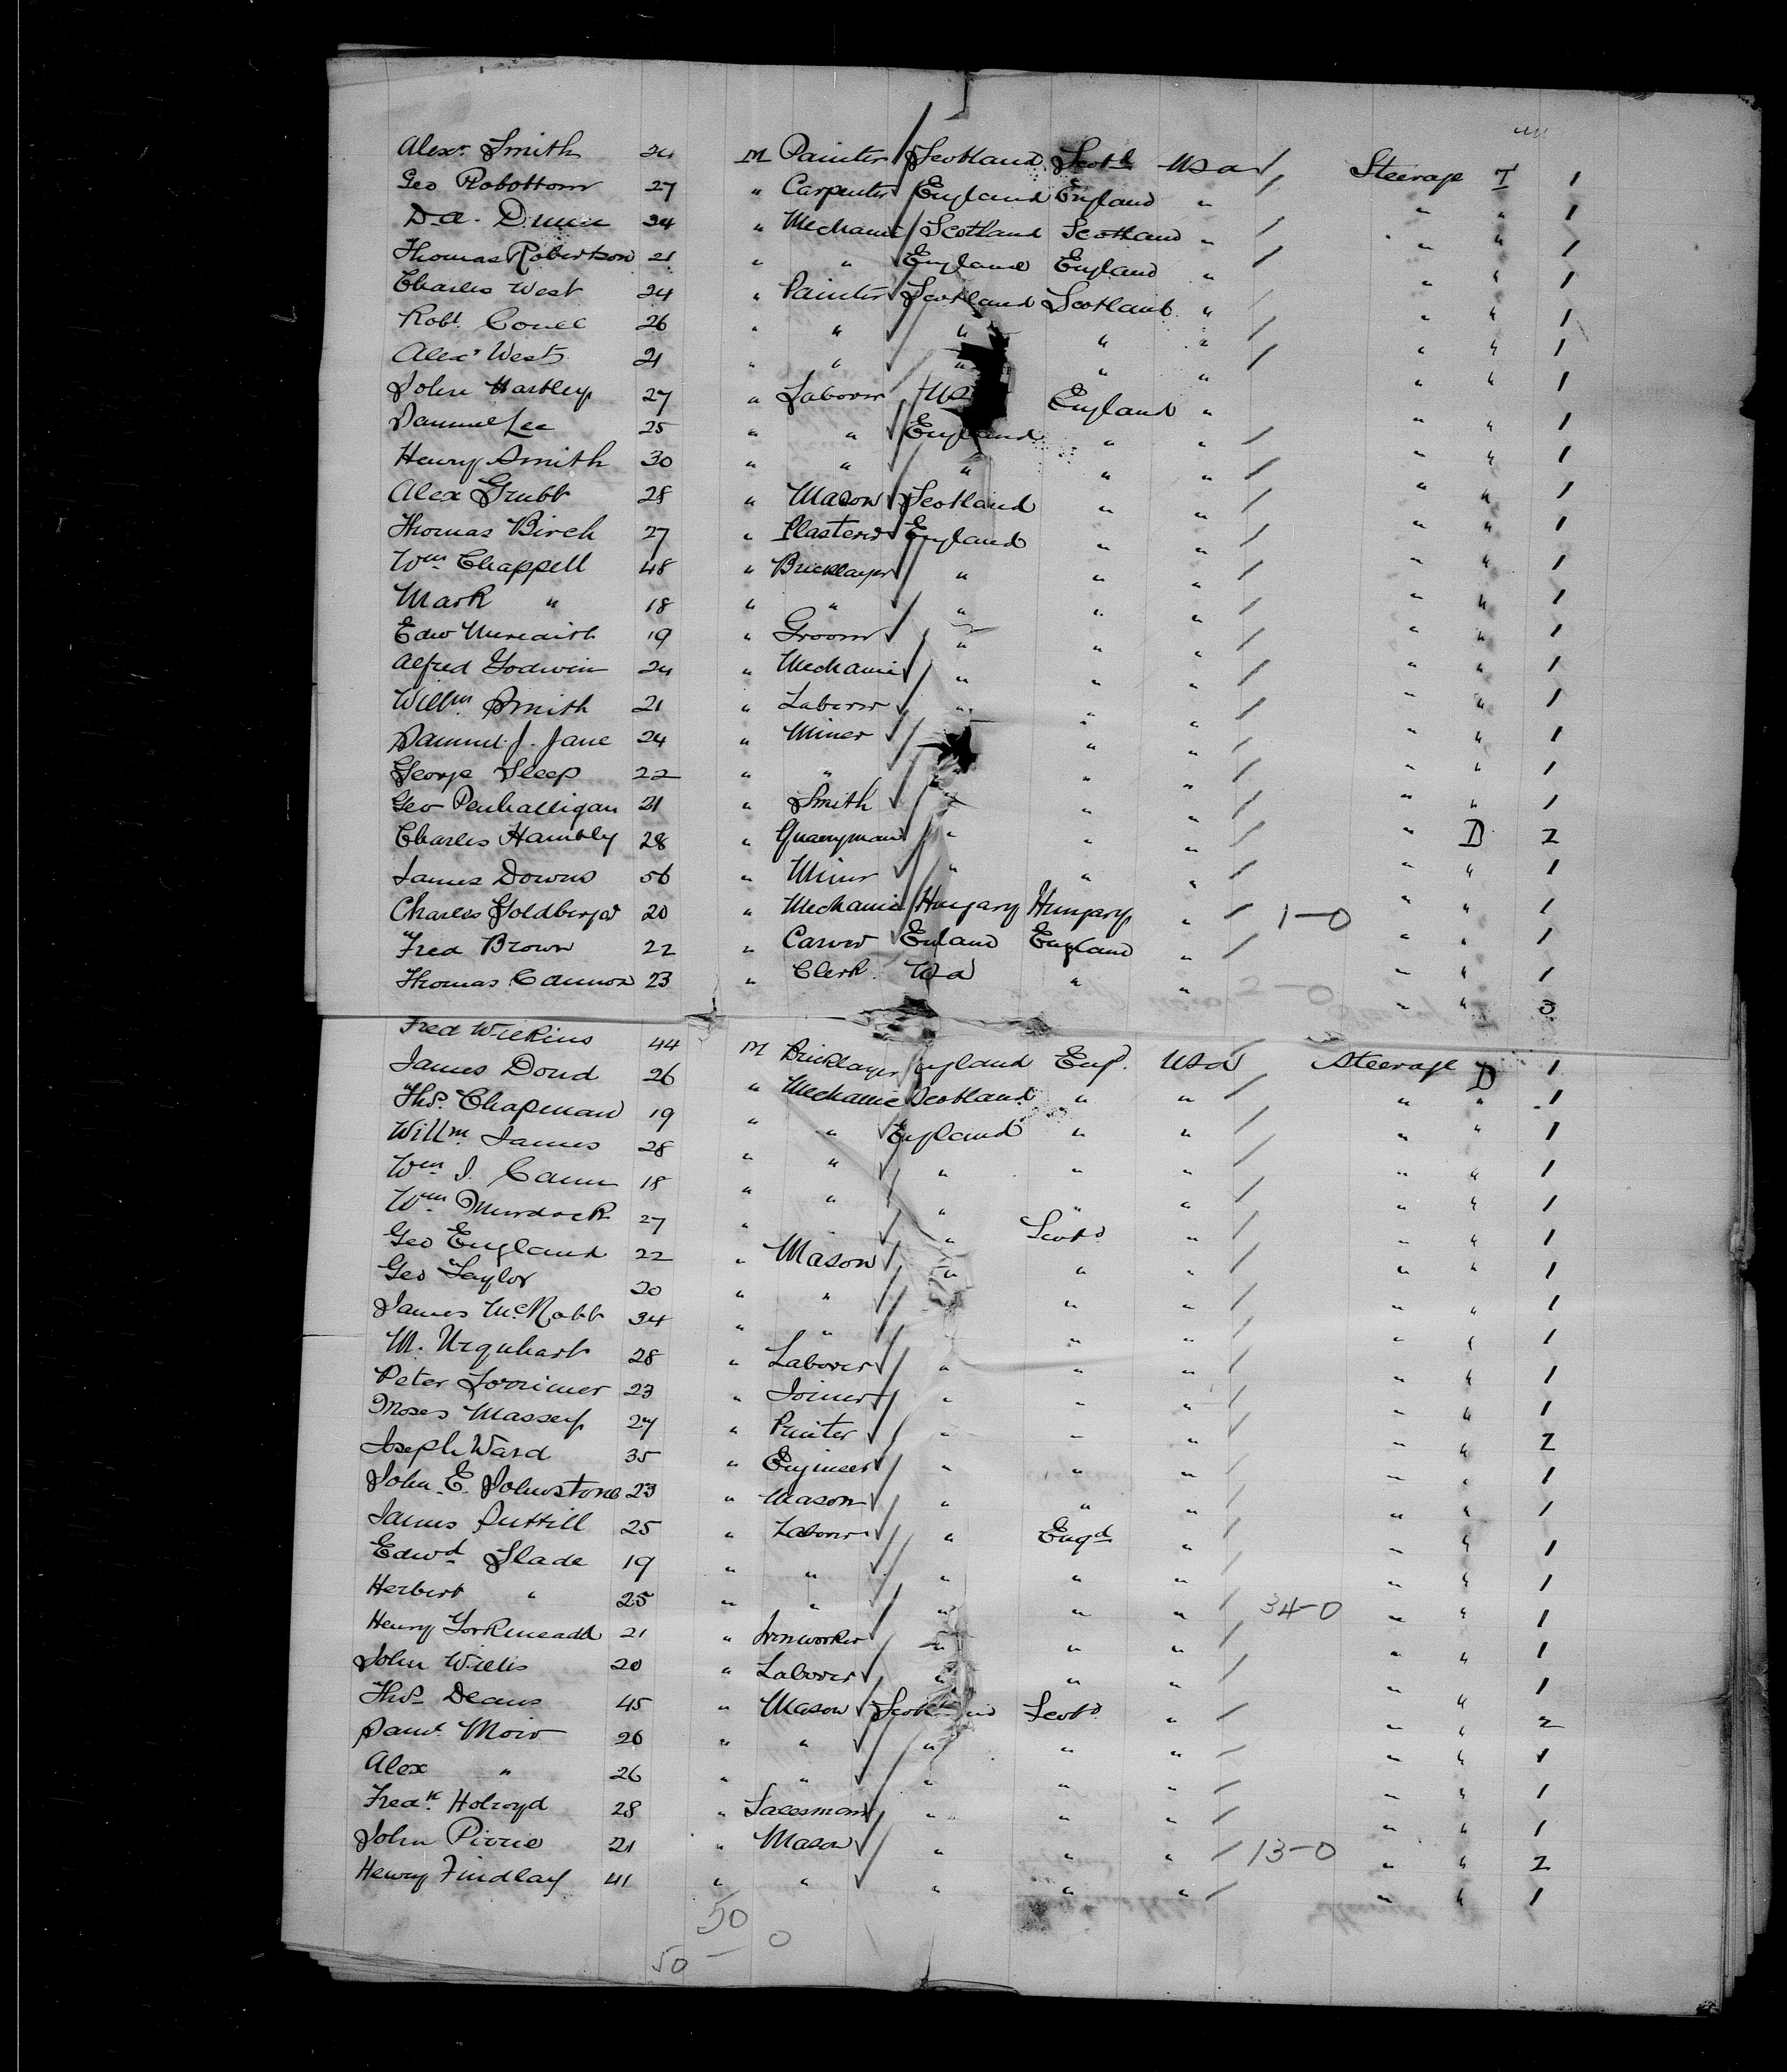 Alexr. Smith 24 M Painter Scotland Scotd USa Steerage T 1
Geo Robottom 27 " Carpenter England England " " " 1
D.a. Dunn 24 " Mechanic Scotland Scotland " " " 1
Thomas Robertson 21 " " England England " " " 1
Charles West 24 " Painter Scotland Scotland " " " 1
Robt. Coull 26 " " " " " " " 1
Alexr West 21 " " " " " " " 1
John Hartley 27 " Laborer US England " " " 1
Samuel Lee 25 " " England " " " " 1
Henry Smith 30 " " " " " " " 1
Alex Grubb 28 " Mason Scotland " " " " 1
Thomas Birch 27 " Plasterer England " " " " 1
Wm Chappell 48 " Bricklayer " " " " " 1
Mark " 18 " " " " " " " 1
Edw Meredith 19 " Groom " " " " " 1
Alfred Godwin 24 " Mechanic " " " " " 1
Willm. Smith 21 " Laborer " " " " " 1
Samuel J. Jane 24 " Miner " " " " " 1
George Sleep 22 " " " " " " " 1
Geo Penhalligan 21 " Smith " " " " " 1
Charles Hambly 28 " Quarryman " " " " D 2
James Downs 56 " Miner " " " " " 1
Charles Goldberger 20 " Mechanic Hungary Hungary " 1-0 " " 1
Fred Brown 22 " Carver Enland England " " " 1
Thomas Cannon 23 " Clerk USa " " " " 1
2-0 " " 3
Fred Wilkins 44 M Bricklayer England Eng. USa Steerage D 1
James Doud 26 " Mechanic Scotland " " " " 1
Thos. Chapman 19 " " England " " " " 1
Willm. James 28 " " " " " " " 1
Wm J. Cann 18 " " " " " " " 1
Wm Murdock 27 " " Scotd " " " 1
Geo England 22 " Mason " " " " " 1
Geo Taylor 20 " " " " " " 1
James McRobb 34 " " " " " " 1
M. Urquhart 28 " Laborer " " " " " 1
Peter Lorrimer 23 " Joiner " " " " " 1
Moses Massey 27 " Painter " " " " " 2
Joseph Ward 35 " Engineer " " " " " 1
John. E. Johnstone 23 " Mason " " " " " 1
James Puttill 25 " Laborer " Engd " " " 1
Edwd Slade 19 " " " " " " " 1
Herbert " 25 " " " " " 34-0 " " 1
Henry Yorkmeadd 21 " Ironworker " " " " " 1
John Willis 20 " Laborer " " " " 1
Thos Deans 45 " Mason Scotland Scotd " " " 2
Saml. Moir 26 " " " " " " " 1
Alex " 26 " " " " " " " 1
Fredk. Holroyd 28 " Salesman " " " " " 1
John Pirrie 21 " Mason " " " 13-0 " " 2
Henry Findlay 41 " " " " " " " 1
50
50 - 0